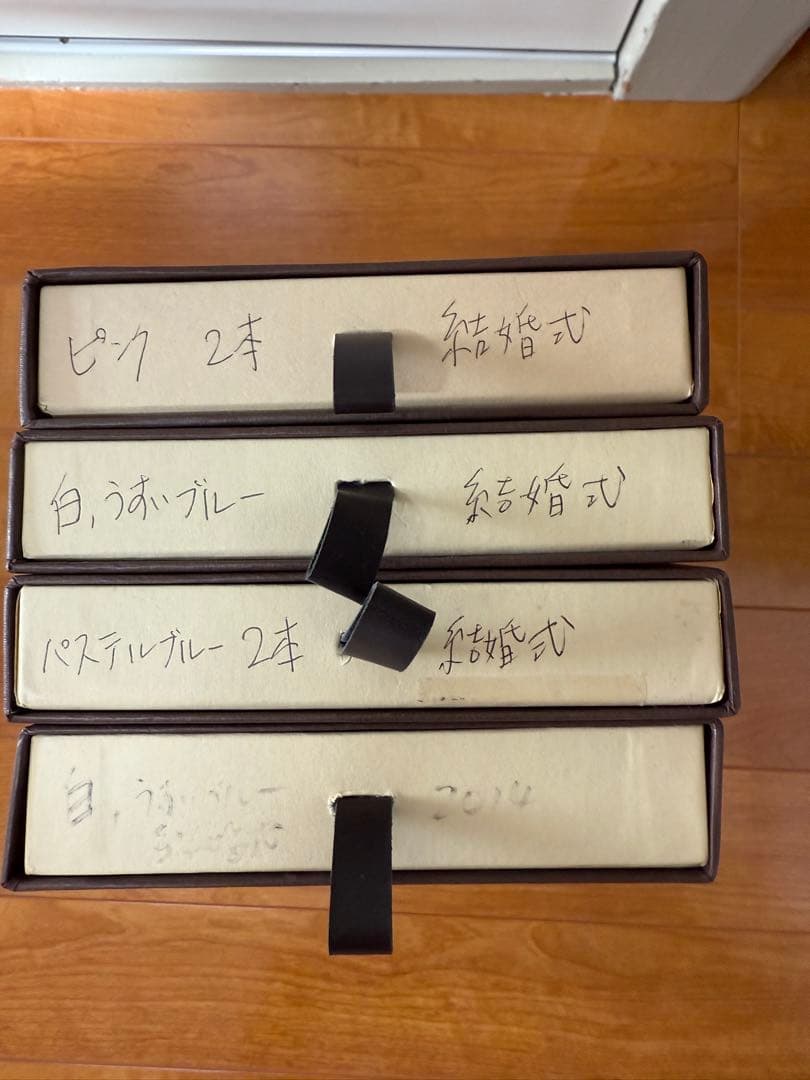 ピンク 2本 結婚式
白,うすいブルー 結婚式
パステルブルー 2本 結婚式
白,うすいブルー 2014